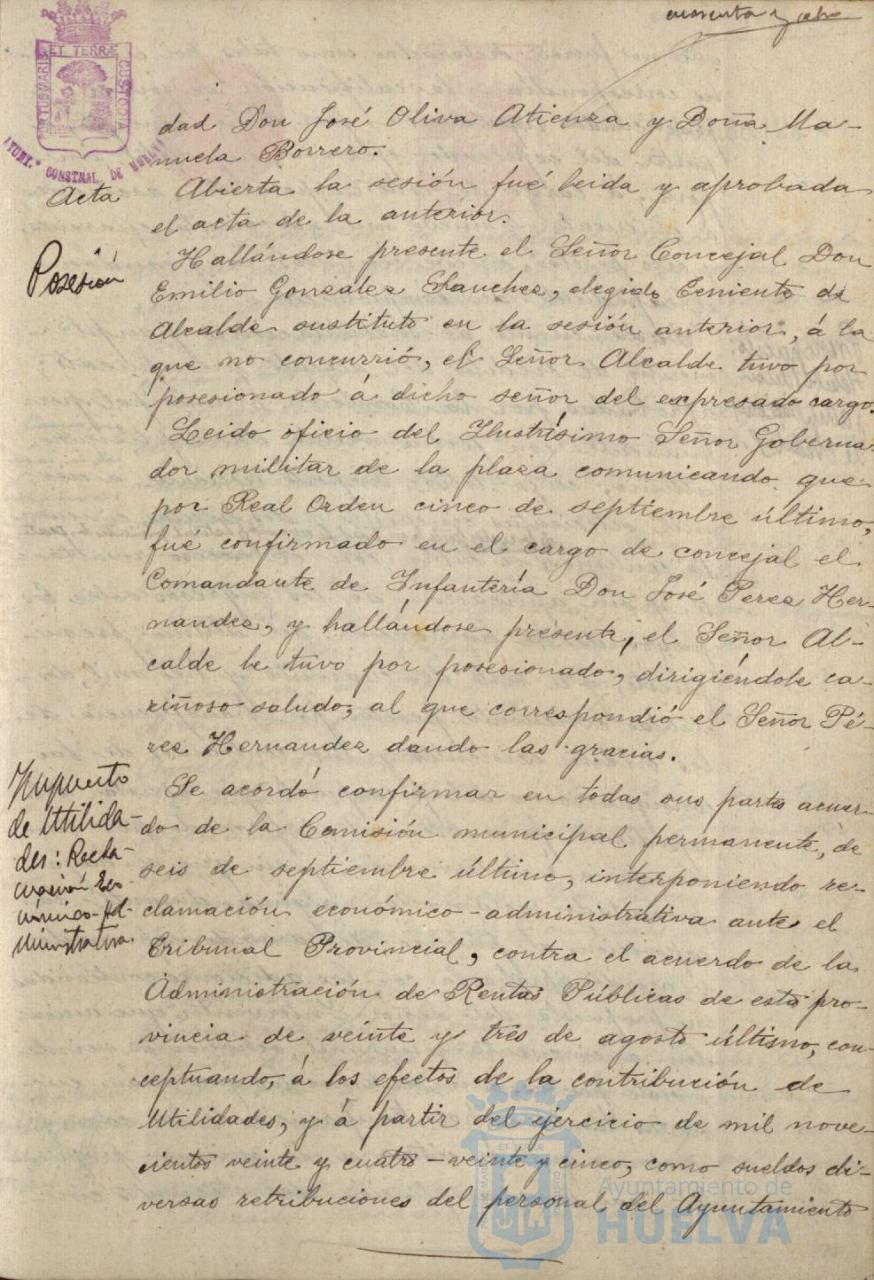 cuarenta y ocho
PORTUS MARIS ET TERRÆ CUSTODIA
AYUNT.º CONSTNAL. DE HUELVA
dad Don José Oliva Atienza y Doña Ma-
nuela Borrero.
Acta
Abierta la sesión fué leida y aprobada
el acta de la anterior.
Posesión
Hallándose presente el Señor Concejal Don
Emilio Gonzalez Sanchez, elegido Teniente de
Alcalde sustituto en la sesión anterior, á la
que no concurrió, el Señor Alcalde tuvo por
posesionado á dicho señor del expresado cargo.
Leido oficio del Ilustrísimo Señor Goberna-
dor militar de la plaza comunicando que
por Real Orden cinco de septiembre último,
fué confirmado en el cargo de concejal el
Comandante de Infantería Don José Perez Her-
nandez, y hallándose presente, el Señor Al-
calde le tuvo por posesionado, dirigiéndole ca-
riñoso saludo, al que correspondió el Señor Pé-
rez Hernandez dando las gracias.
Impuesto
de Utilida-
des: Recla-
mación Eco-
nómico-Ad-
ministrativa.
Se acordó confirmar en todas sus partes acuer-
do de la Comisión municipal permanente, de
seis de septiembre último, interponiendo re-
clamación económico-administrativa ante el
Tribunal Provincial, contra el acuerdo de la
Administración de Rentas Públicas de esta pro-
vincia de veinte y tres de agosto último, con-
ceptuando, á los efectos de la contribución de
Utilidades, y á partir del ejercicio de mil nove-
cientos veinte y cuatro-veinte y cinco, como sueldos di-
versas retribuciones del personal del Ayuntamiento
Ayuntamiento de
HUELVA